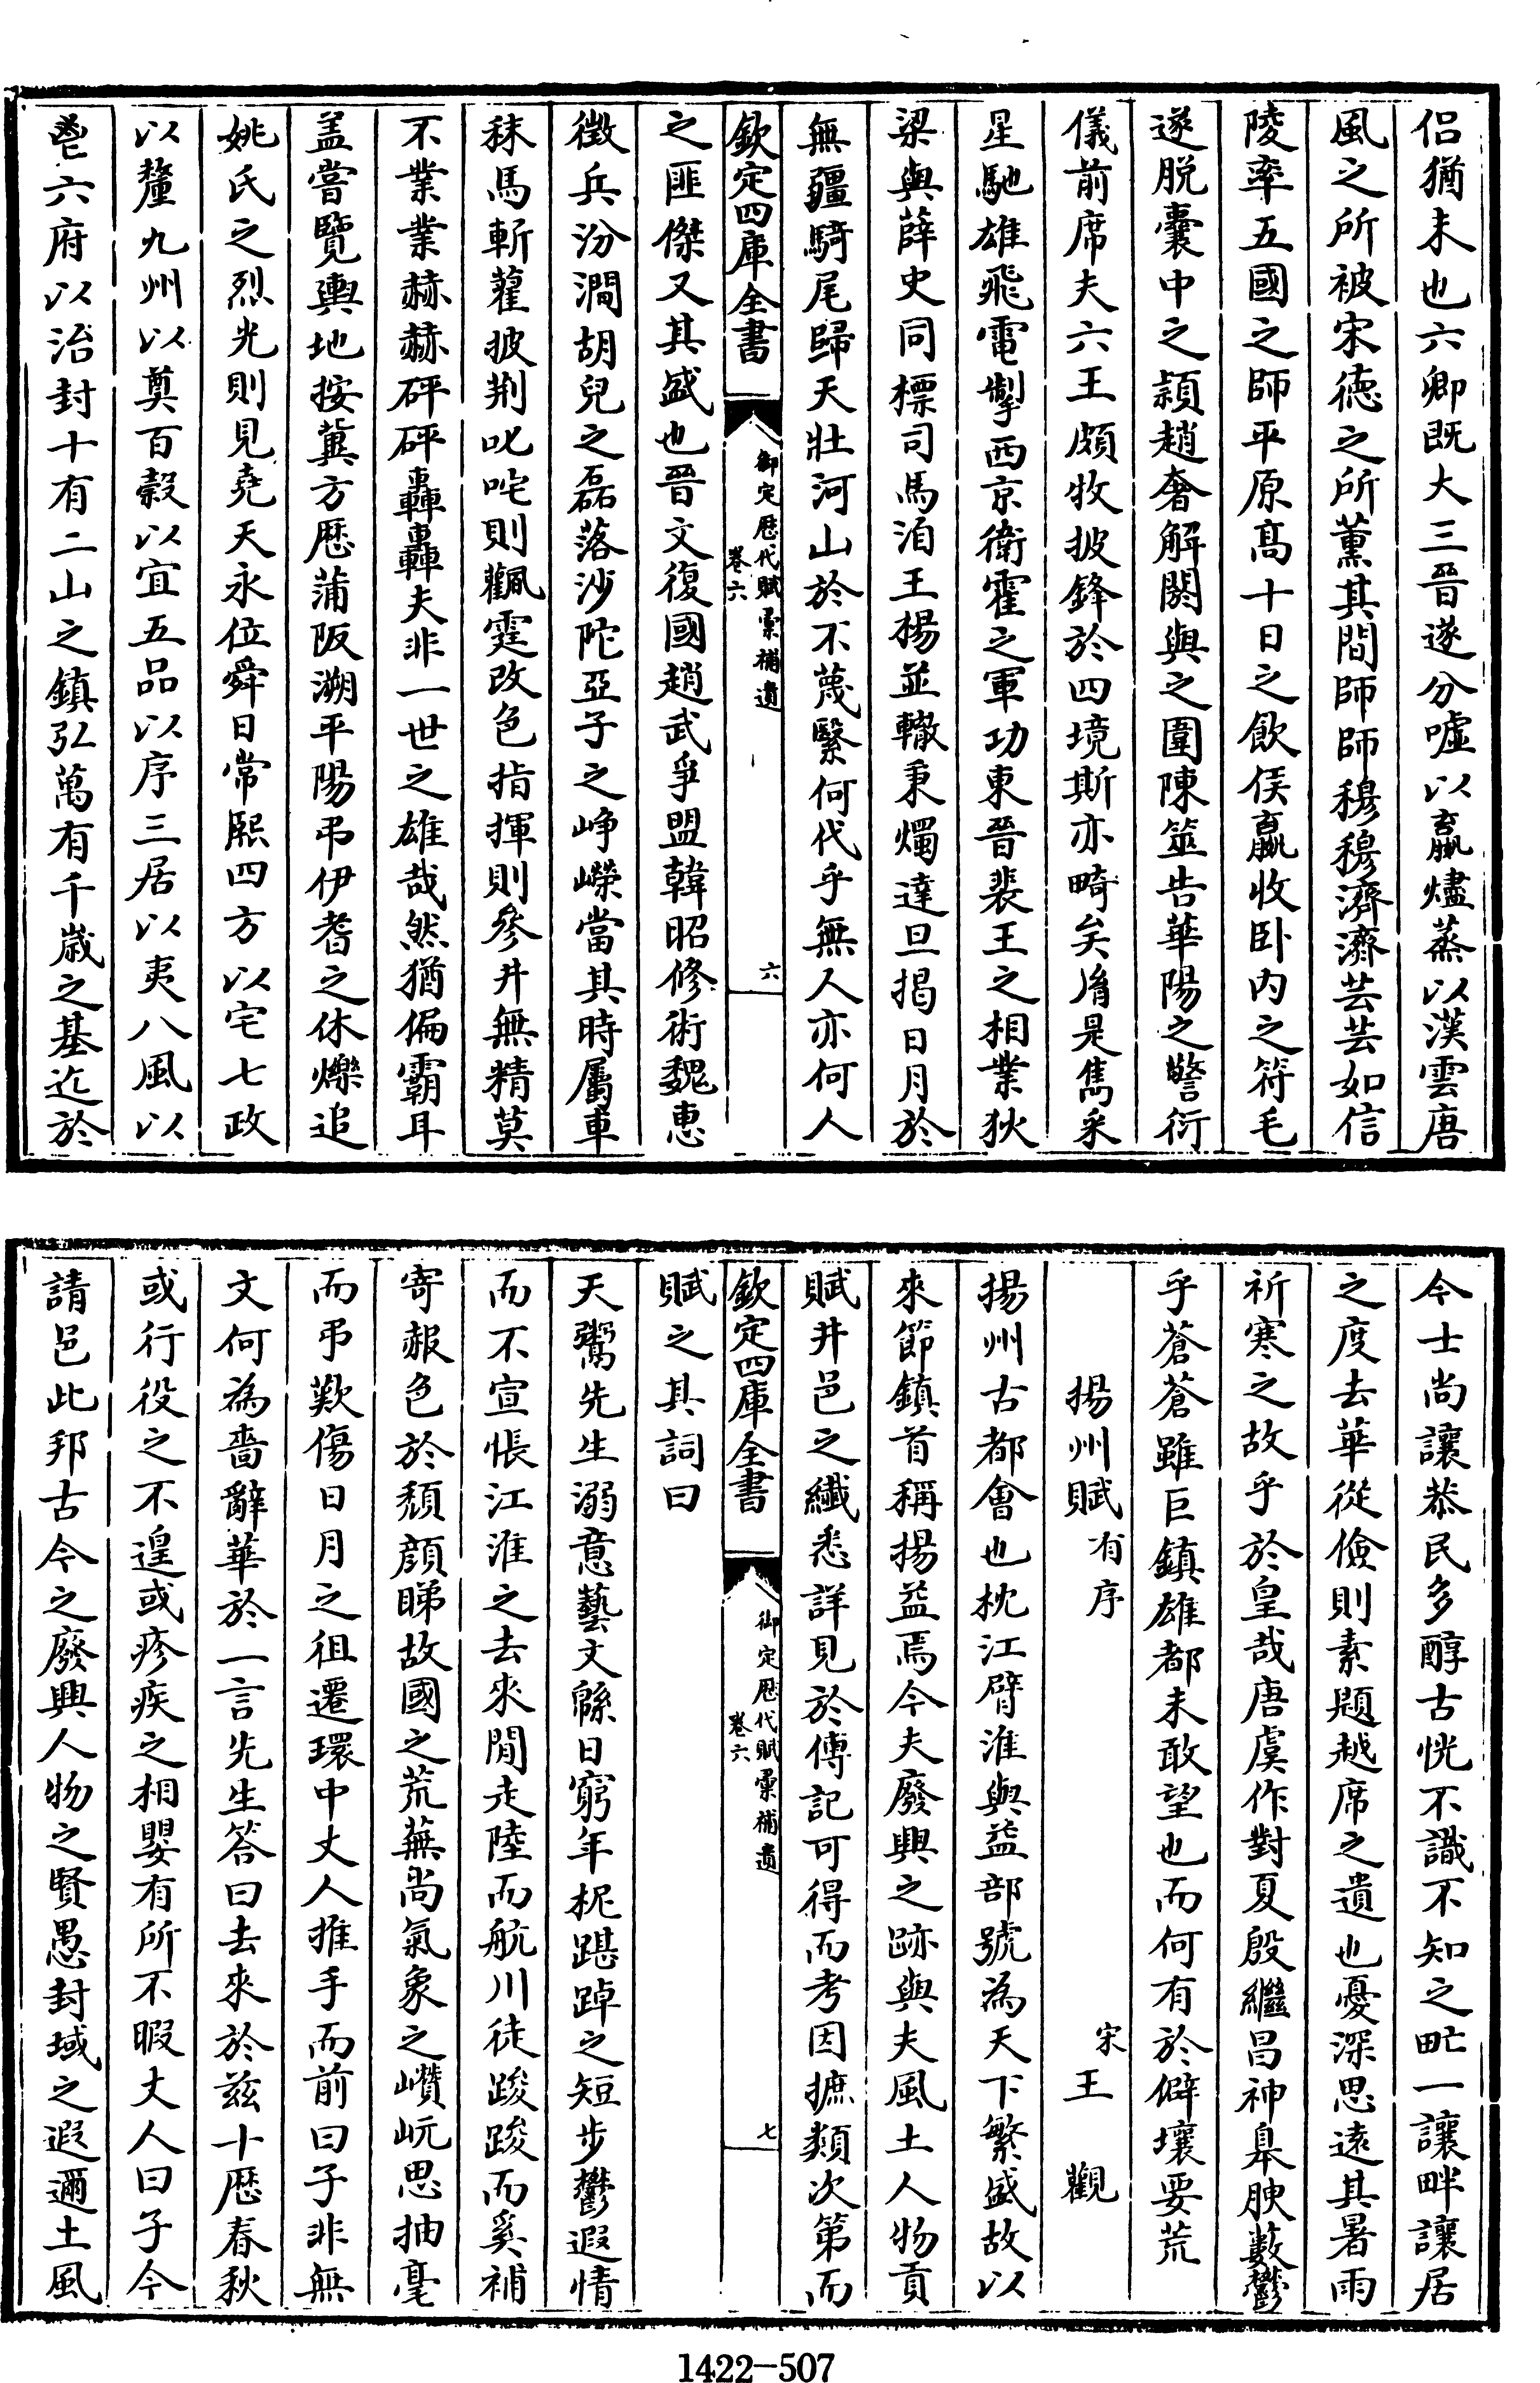 侣猶未也六卿既大三晉遂分噓以嬴燼蒸以漢雲唐
風之所被宋德之所薰其間師師穆穆濟濟芸芸如信
陵率五國之師平原髙十日之飲侯嬴收卧内之符毛
遂脱囊中之潁趙奢解閼與之圍陳筮告華陽之警衍
儀前席夫六王頗牧披鋒於四境斯亦畸矣胤是雋采
星馳雄飛電掣西京衛霍之軍功東晉裴王之相業狄
梁與薛史同標司馬洎王揚並轍秉燭達旦揭日月於
無疆騎尾歸天壯河山於不蔑繄何代乎無人亦何人
欽定四庫全書
御定歴代賦彙補遺
卷六
六
之匪傑又其盛也晉文復國趙武爭盟韓昭修術魏惠
徵兵汾澗胡兒之磊落沙陀亞子之峥嶸當其時屬車
秣馬斬藋披荆叱咤則飌霆改色指揮則參井無精莫
不業業赫赫砰砰轟轟夫非一世之雄哉然猶偏霸耳
盖嘗覽輿地按冀方歴蒲阪溯平陽弔伊耆之休爍追
姚氏之烈光則見堯天永位舜日常熙四方以宅七政
以釐九州以奠百榖以宜五品以序三居以夷八風以
邕六府以治封十有二山之鎮弘萬有千嵗之基迄於
今士尚讓恭民多醇古恍不識不知之甿一讓畔讓居
之度去華從儉則素題越席之遺也憂深思遠其暑雨
祈寒之故乎於皇哉唐虞作對夏殷繼昌神臯腴數鬱
乎蒼蒼雖巨鎮雄都未敢望也而何有於僻壤要荒
揚州賦有序 宋王觀
揚州古都會也枕江臂淮與益部號為天下繁盛故以
來節鎮首稱揚益焉今夫廢興之跡與夫風土人物貢
賦井邑之纎悉詳見於傳記可得而考因摭類次第而
欽定四庫全書
御定歴代賦彙補遺
卷六
七
賦之其詞曰
天鬻先生溺意藝文緜日窮年柅踸踔之短步鬱遐情
而不宣悵江淮之去來閒走陸而航川徒踆踆而奚補
寄赧色於頽顔睇故國之荒蕪尚氣象之巑岏思抽毫
而弔歎傷日月之徂遷環中丈人推手而前曰子非無
文何為嗇辭華於一言先生答曰去來於兹十歴春秋
或行役之不遑或疹疾之相嬰有所不暇丈人曰子今
請邑此邦古今之廢興人物之賢愚封域之遐邇土風
1422-507